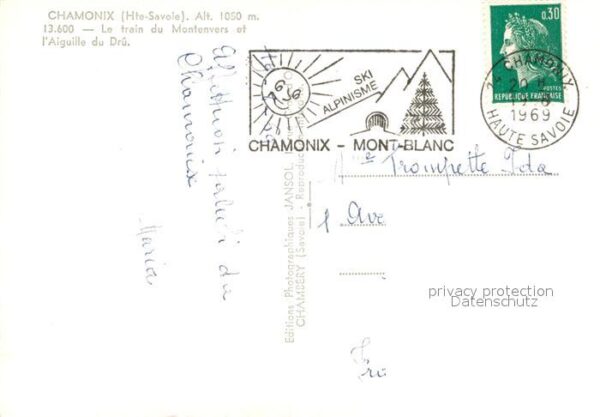 CHAMONIX (Hte-Savoie). Alt. 1050 m.
13.600 — Le train du Montenvers et
l'Aiguille du Drû.
0,30
POSTES
REPUBLIQUE FRANÇAISE
CHAMONIX
1969
HAUTE SAVOIE
SKI
ALPINISME
CHAMONIX - MONT-BLANC
Affettuosi saluti da
Chamonix
Maria
Editions Photographiques JANSOL,
CHAMBERY (Savoie) - Reproduction
Trompette Ida
1 Ave
Fra
privacy protection
Datenschutz